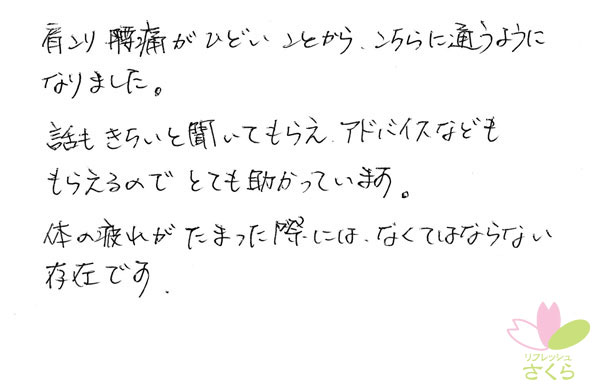 肩コリ 腰痛がひどいことから、こちらに通うように
なりました。
話もきちんと聞いてもらえ、アドバイスなども
もらえるのでとても助かっています。
体の疲れがたまった際には、なくてはならない
存在です.
リフレッシュ
さくら